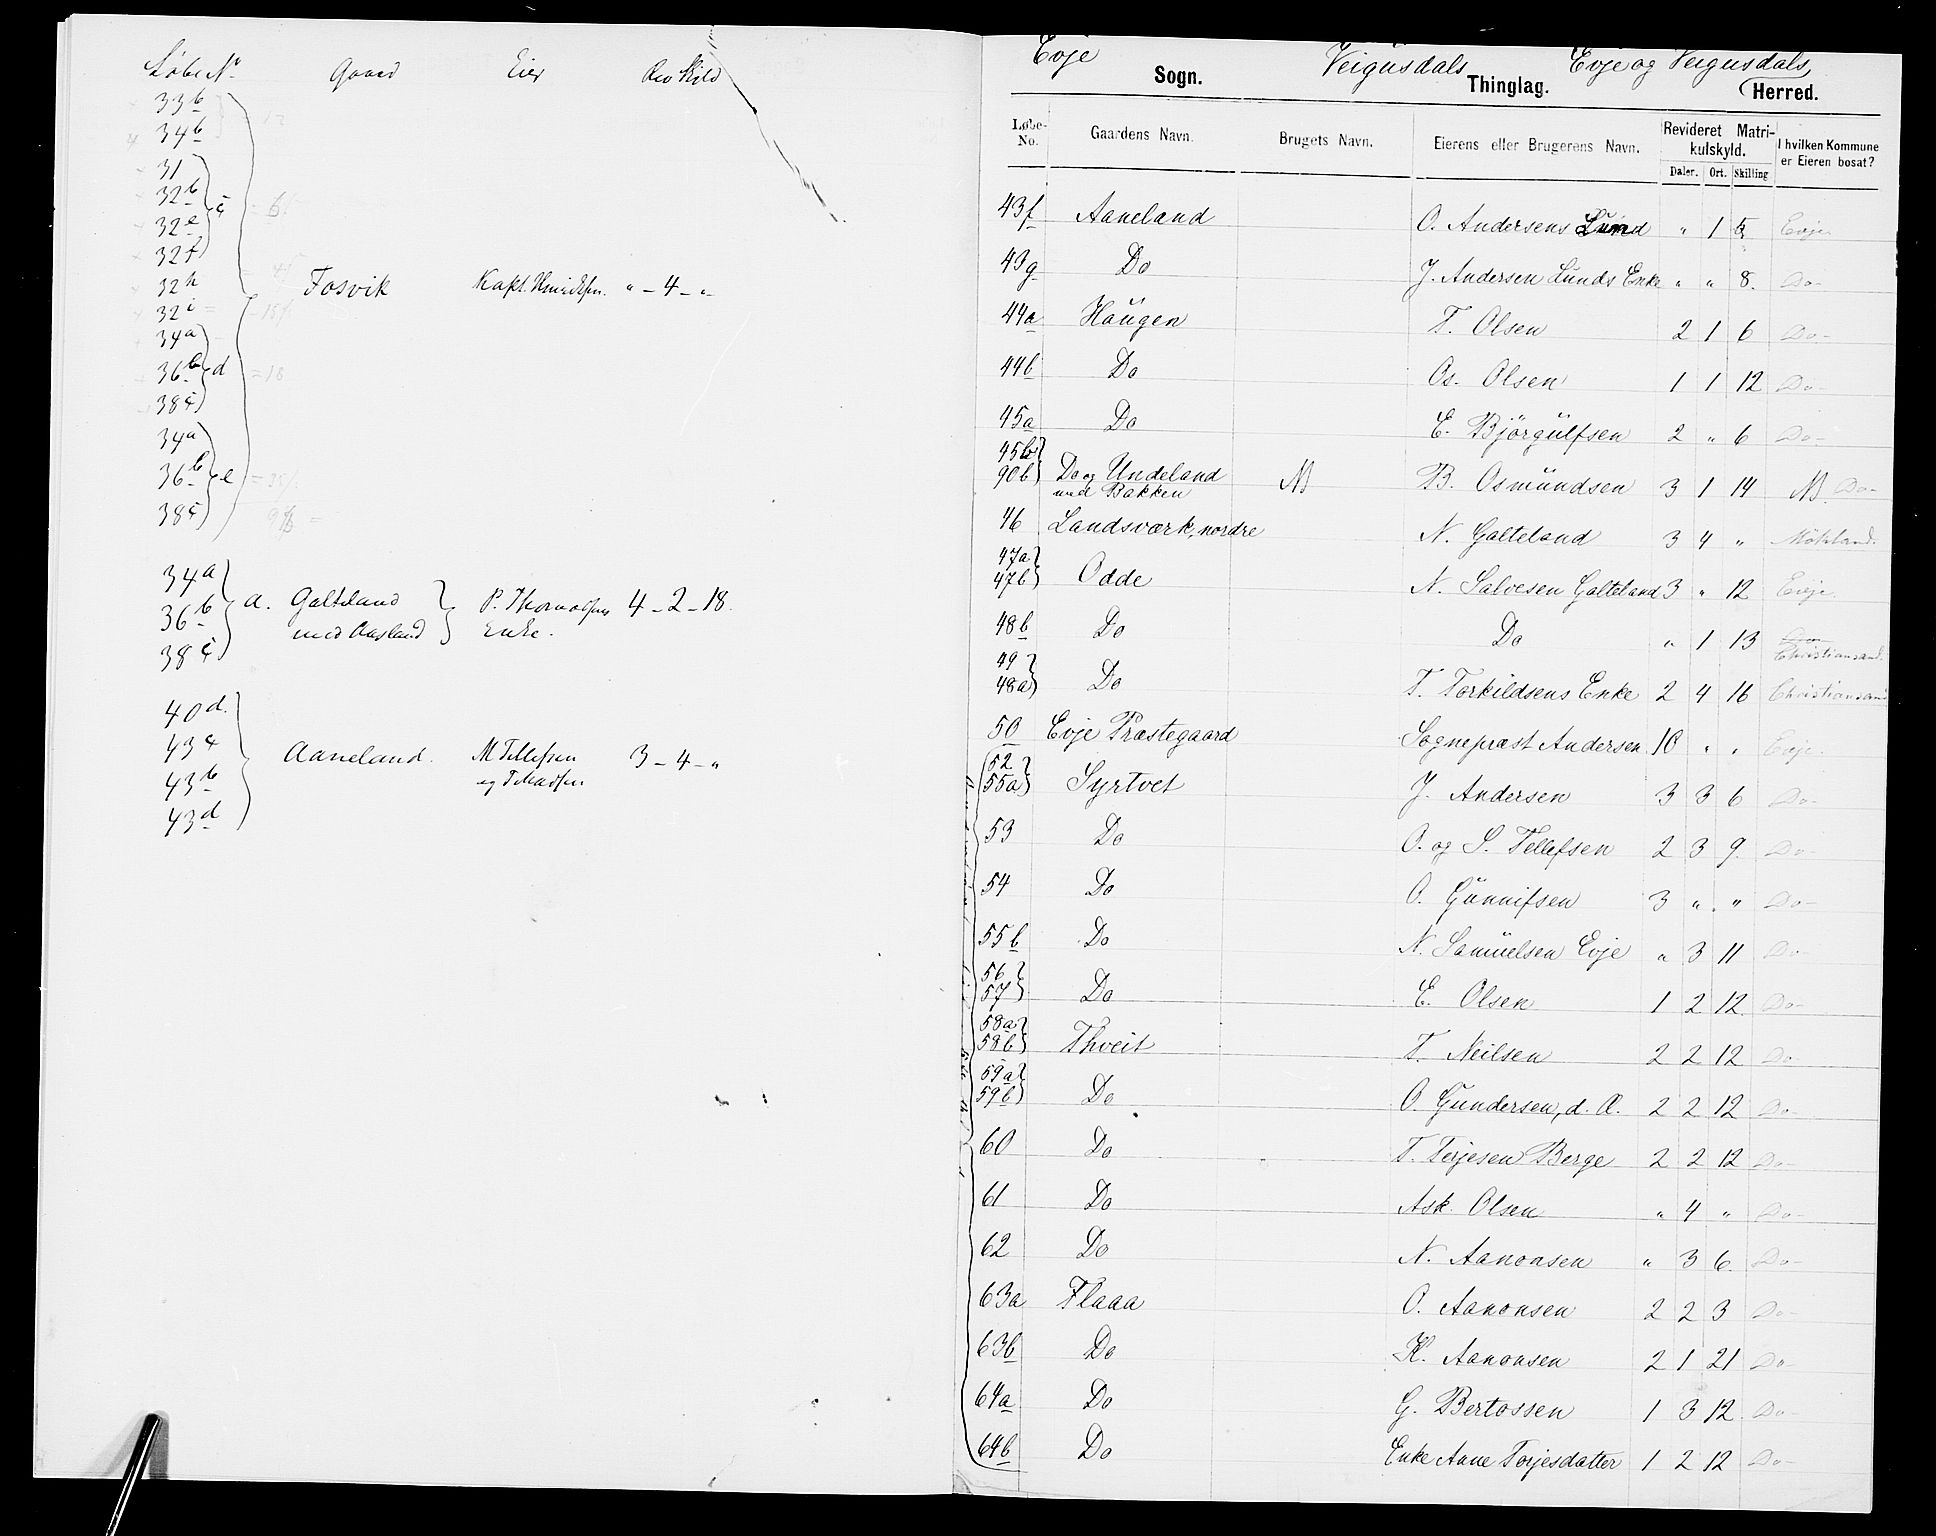 Løbe No Gaard Eier Rev Skild
33b
34b
31
32b
32e c
32f
32h
32i Fosvik Kapt. " - 4 - "
34a
36b d
38c
34a
36b e
38c
34a
36b a. Galteland P. Thomassens 4 - 2 - 18.
38c med Aasland Enke.
40d
43c
43b Aaneland. M Tellefsen 3 - 4 - "
43d og
Evje Sogn. Veigusdals Thinglag. Evje og Veigusdals Herred.
Løbe-No. Gaardens Navn. Brugets Navn. Eierens eller Brugerens Navn. Revideret Matrikulskyld. I hvilken Kommune er Eieren bosat?
Daler. Ort. Skilling
43f Aaneland O. Andersens Lund " 1 5 Evje
43g Do J. Andersen Lunds Enke " " 8. Do-
44a Haugen T. Olsen 2 1 6 Do-
44b Do Os. Olsen 1 1 12 Do-
45a Do E. Bjørgulfsen 2 " 6 Do-
45b
90b Do og Undeland B. Osmundsen 3 1 14 Do-
med Bakken
46 Landsværk, nordre N. Galteland 3 4 "
47a
47b Odde N. Salvesen Galteland 3 " 12 Evje.
48b Do Do " 1 13 Christiansand.
49
48a Do T. Torkildsens Enke 2 4 16 Christiansand
50 Evje Præstegaard Sognepræst Andersen 10 " " Evje.
52
55a Syrtvet J. Andersen 3 3 6 Do-
53 Do O. og S. Tellefsen 2 3 9. Do-
54 Do O. Gunnifsen 3 " " Do-
55b Do N. Samuelsen Evje " 3 11 Do-
56
57 Do E. Olsen 1 2 12 Do-
58a
58b Thveit T. Neilsen 2 2 12 Do
59a
59b Do O. Gundersen, d. Æ. 2 2 12 Do-
60 Do T. Terjesen Berge 2 2 12 Do-
61 Do Ask. Olsen " 4 " Do-
62 Do N. Aanonsen " 3 6. Do-
63a Flaaa O. Aanonsen 2 2 3 Do-
63b Do K. Aanonsen 2 1 21 Do-
64a Do G. Bertossen 1 3 12 Do-
64b Do Enke Aane Torjesdatter 1 2 12 Do-